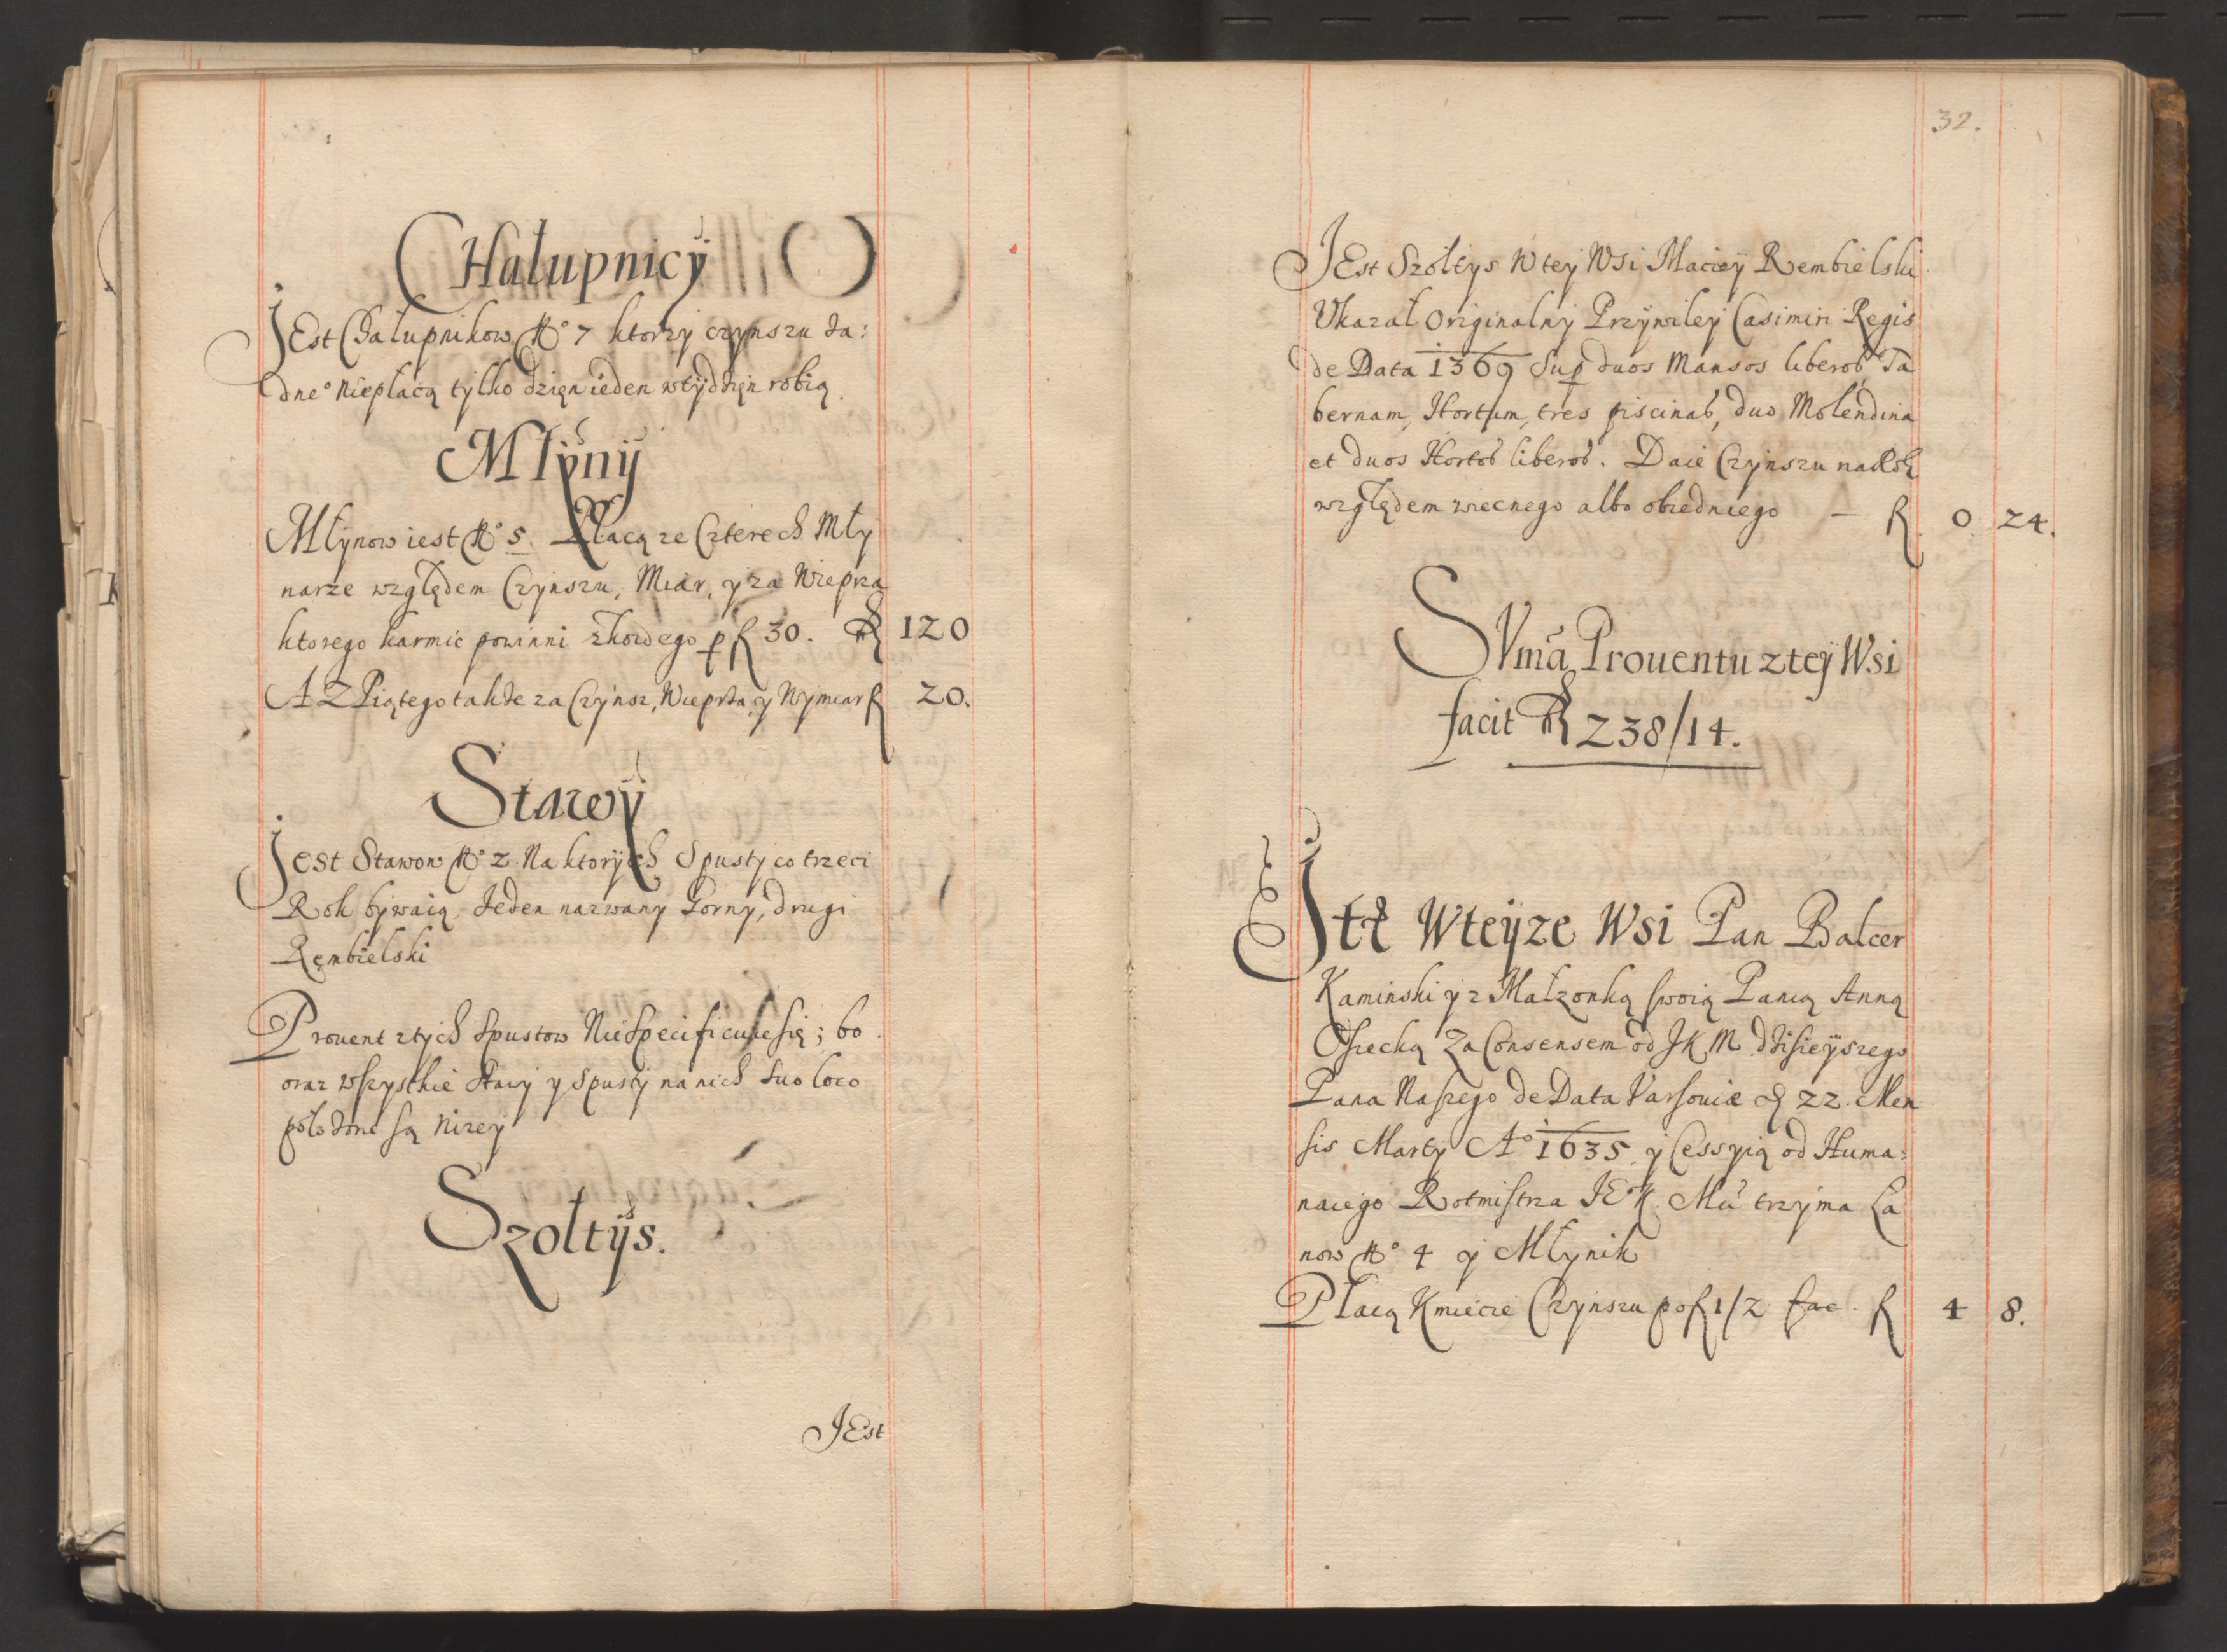 CHałupnicÿ
JEst Chałupnikow No 7 ktorzy czynszu ża:
dneo nie płacą tylko dzięn ieden wtydzięn robią.
Młÿnÿ
Młynow iest No 5. Płacą ze Czterech Mły
narze względem Czynszu, Miar, y za Wieprza
ktorego karmic powinni zkożdego p f 30. f 120
A Z Piątego także za Czynsz, Wieprża, y Wymiar f 20.
Stawÿ
Jest Stawow No 2. Na ktorÿch Spusty co trzeci
Rok bywaią, Jeden nazwany Gorny, drugi
Rembielski
Prouent ztych Spustow Nie Specificuie się; bo
oraz wszystkie Stawy y Spusty na nich suo loco
położone są Nizey
Szołtÿs.
JEst
32.
JEst Szołtys w tey Wsi Maciey Rembielski
Ukazał Originalny Przywiley Casimiri Regis
de Data 1369 Sup duos Mansos liberos Ta
bernam, Hortum, tres piscinas, duo Molendina
et duos Hortos liberos. Daie Czynszu na Rok
względem wiecnego albo obiedniego — f 0 24.
SVma Prouentu z tey Wsi
facit f 238/14.
Itt Wteyze Wsi Pan Balcer
Kaminski y z Małzonką swoią Panią Anną
Osiecką Za Consensem od JKM dzisieyszego
Pana Naszego de Data Varsouiæ d 22 Men
sis Marty Ao 1635, y Cessyią od Huma:
naiego Rotmistrza JEoK. Mci trzyma Ła
now No 4 y Młynik
Płacą Kmiecie Czynszu po f 1/2 fac. f 4 8.